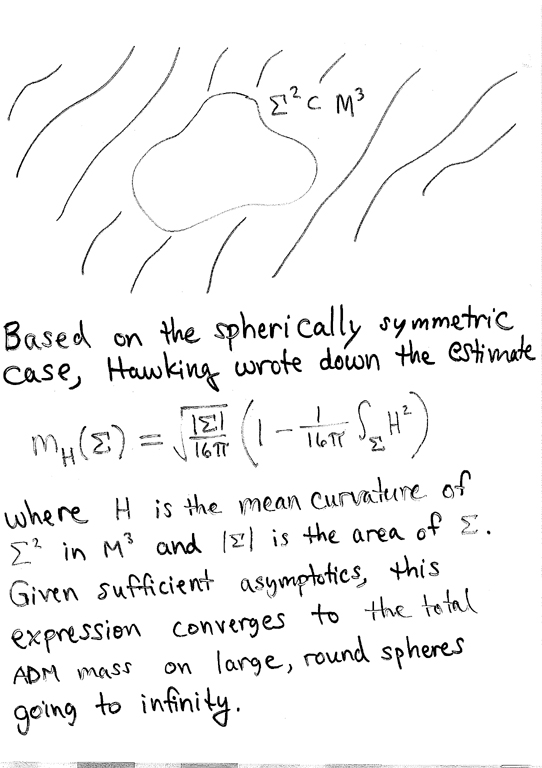 Σ² ⊂ M³
Based on the spherically symmetric
case, Hawking wrote down the estimate
m_H(Σ) = √(|Σ|/16π) (1 − 1/16π ∫_Σ H²)
where H is the mean curvature of
Σ² in M³ and |Σ| is the area of Σ.
Given sufficient asymptotics, this
expression converges to the total
ADM mass on large, round spheres
going to infinity.